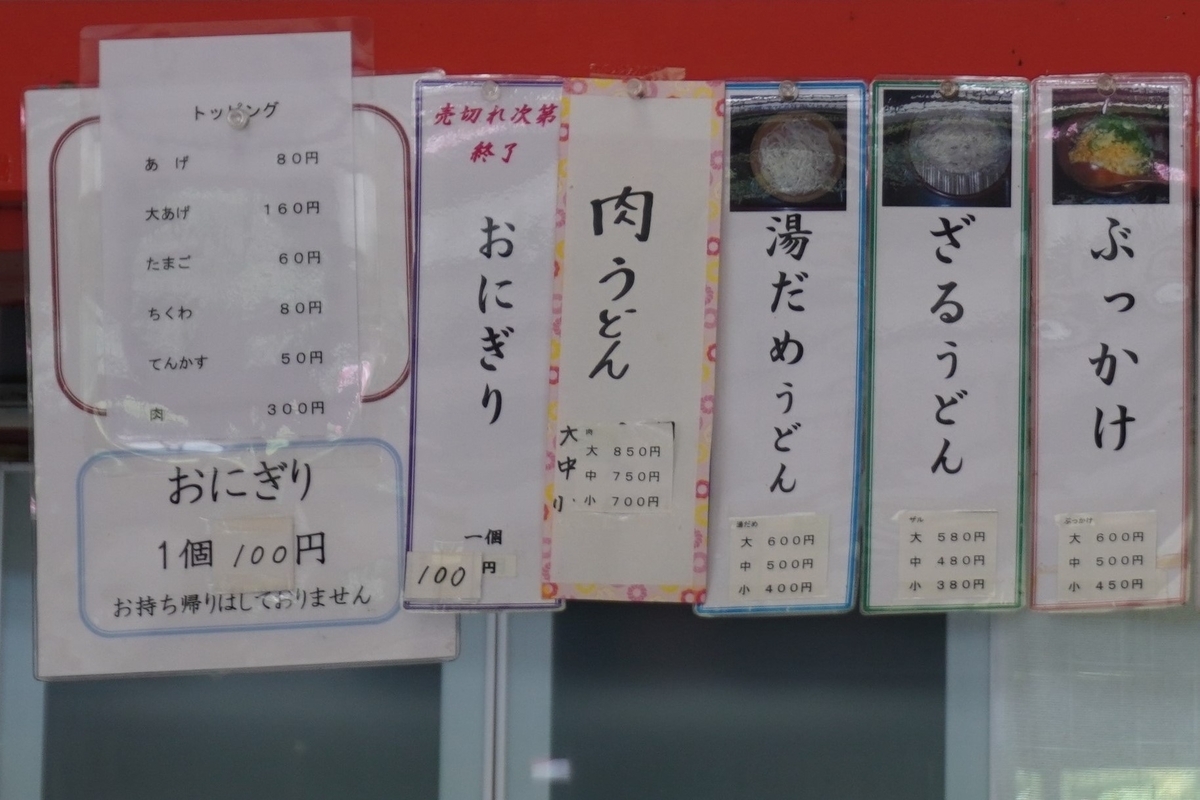 トッピング
あげ 80円
大あげ 160円
たまご 60円
ちくわ 80円
てんかす 50円
肉 300円
おにぎり
1個 100円
お持ち帰りはしておりません
売切れ次第
終了
おにぎり
一個
100円
肉うどん
肉
大 850円
中 750円
小 700円
大
中
湯だめうどん
湯だめ
大 600円
中 500円
小 400円
ざるうどん
ザル
大 580円
中 480円
小 380円
ぶっかけ
ぶっかけ
大 600円
中 500円
小 450円